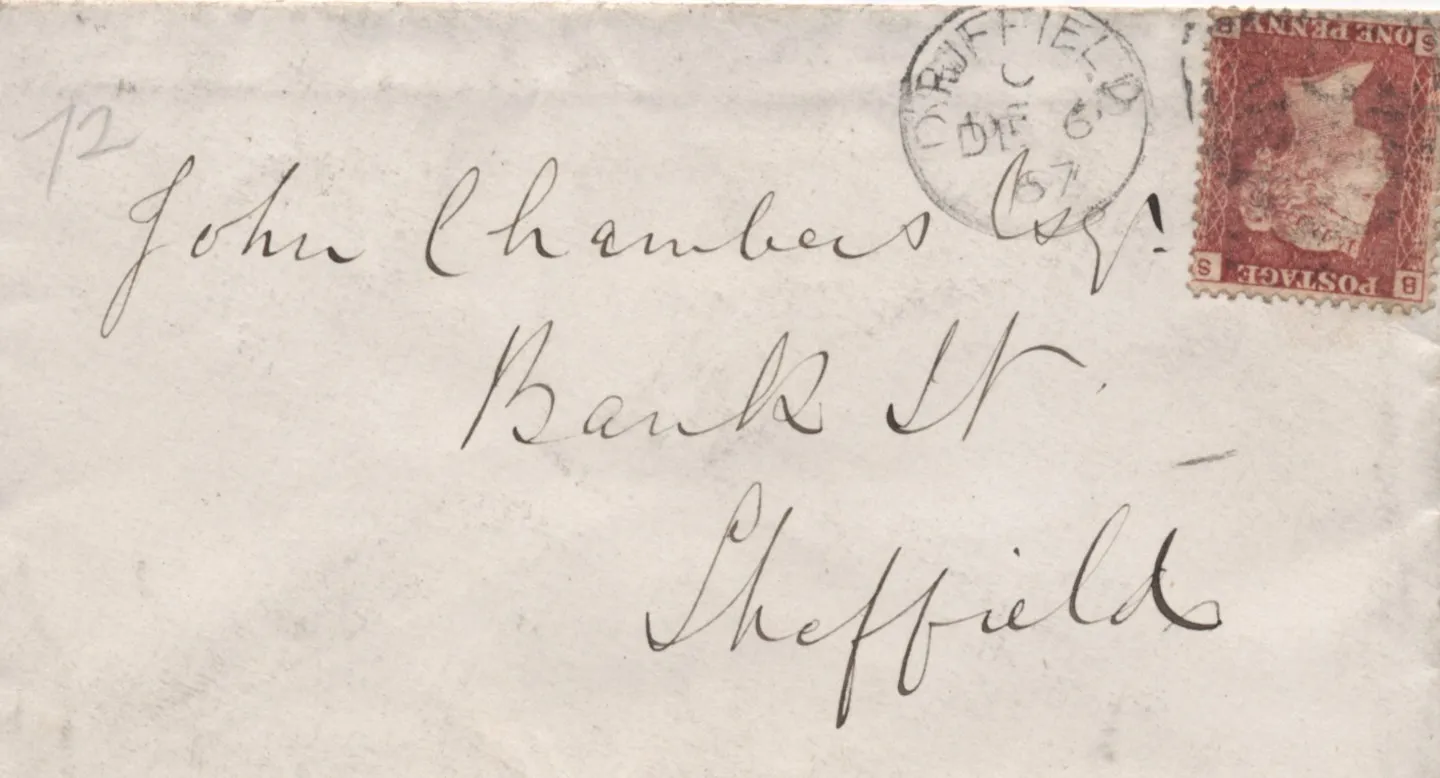 DRIFFIELD
C
DE 6
67
ONE PENNY
B
S
S
POSTAGE
B
72
John Chambers Esqr.
Bank St
Sheffield